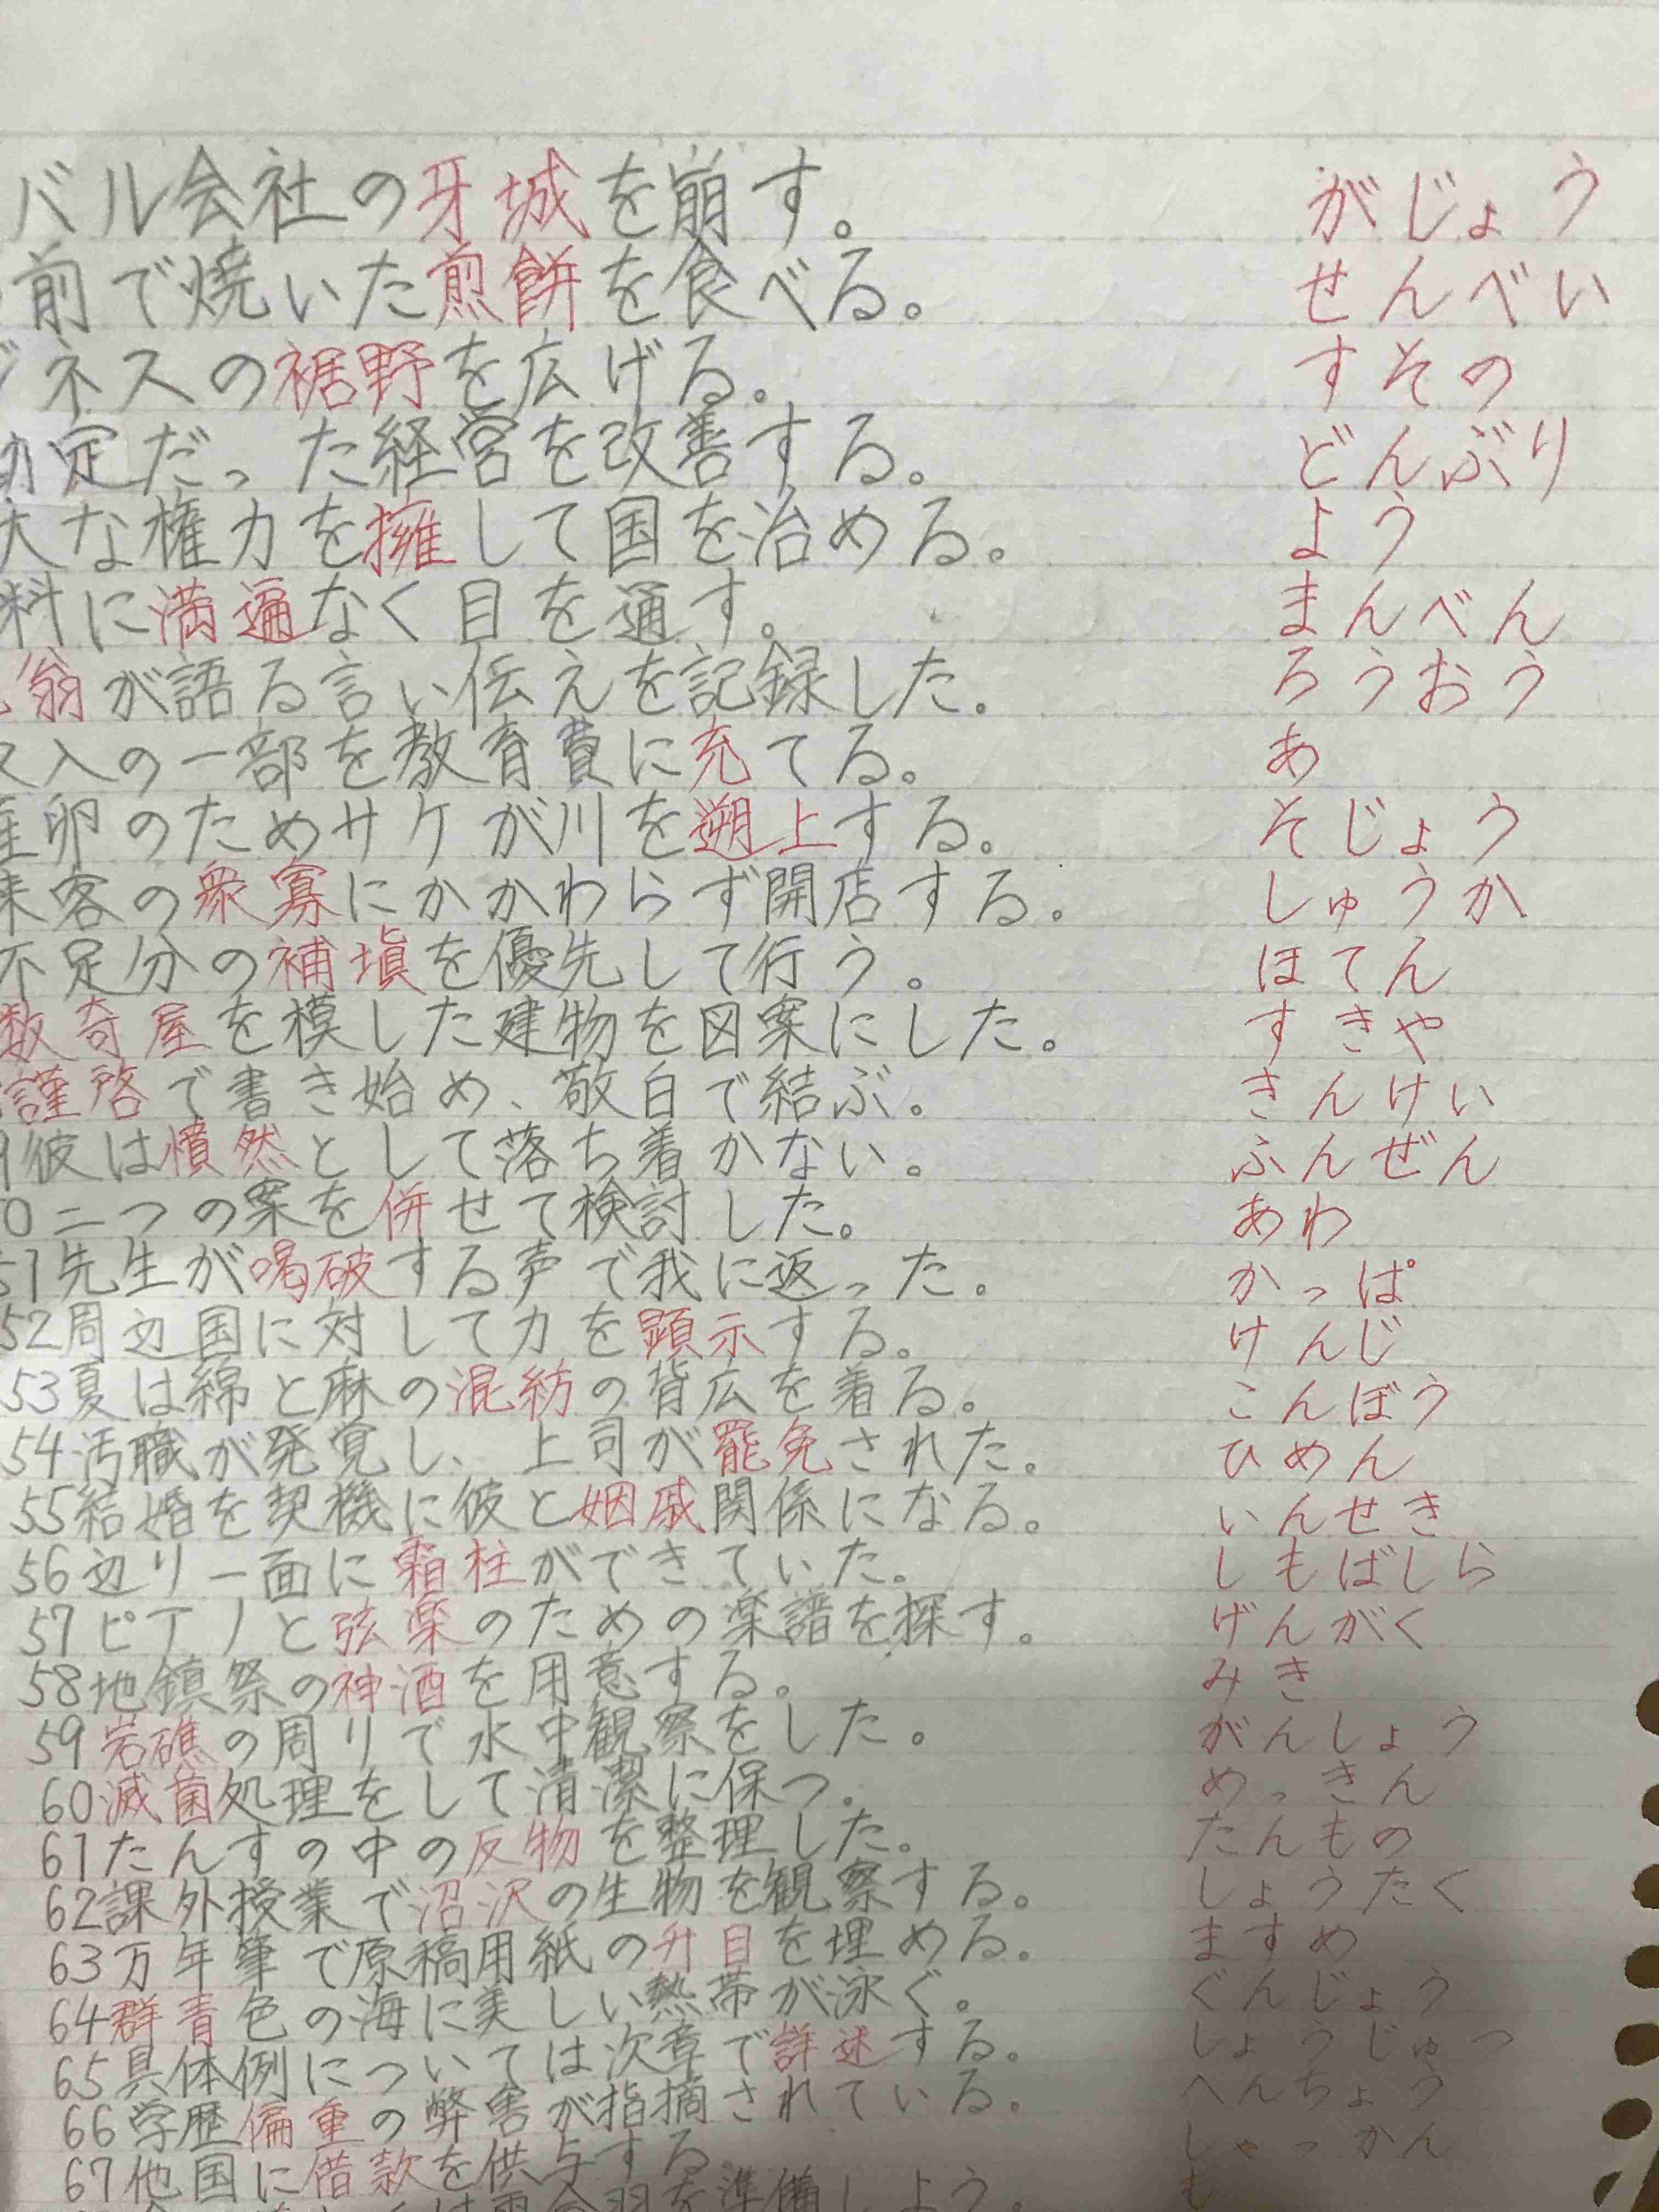 バル会社の牙城を崩す。 がじょう
前で焼いた煎餅を食べる。 せんべい
ジネスの裾野を広げる。 すその
定だった経営を改善する。 どんぶり
大な権力を擁して国を治める。 よう
料に満遍なく目を通す。 まんべん
翁が語る言い伝えを記録した。 ろうおう
入の一部を教育費に充てる。 あ
卵のためサケが川を遡上する。 そじょう
来客の衆寡にかかわらず開店する。 しゅうか
不足分の補塡を優先して行う。 ほてん
数奇屋を模した建物を図案にした。 すきや
謹啓で書き始め、敬白で結ぶ。 きんけい
彼は憤然として落ち着かない。 ふんぜん
0二つの案を併せて検討した。 あわ
51先生が喝破する声で我に返った。 かっぱ
52周辺国に対して力を顕示する。 けんじ
53夏は綿と麻の混紡の背広を着る。 こんぼう
54汚職が発覚し、上司が罷免された。 ひめん
55結婚を契機に彼と姻戚関係になる。 いんせき
56辺り一面に霜柱ができていた。 しもばしら
57ピアノと弦楽のための楽譜を探す。 げんがく
58地鎮祭の神酒を用意する。 みき
59岩礁の周りで水中観察をした。 がんしょう
60滅菌処理をして清潔に保つ。 めっきん
61たんすの中の反物を整理した。 たんもの
62課外授業で沼沢の生物を観察する。 しょうたく
63万年筆で原稿用紙の升目を埋める。 ますめ
64群青色の海に美しい熱帯が泳ぐ。 ぐんじょう
65具体例については次章で詳述する。 しょうじゅつ
66学歴偏重の弊害が指摘されている。 へんちょう
67他国に借款を供与する。 しゃっかん
を準備しよう。 も